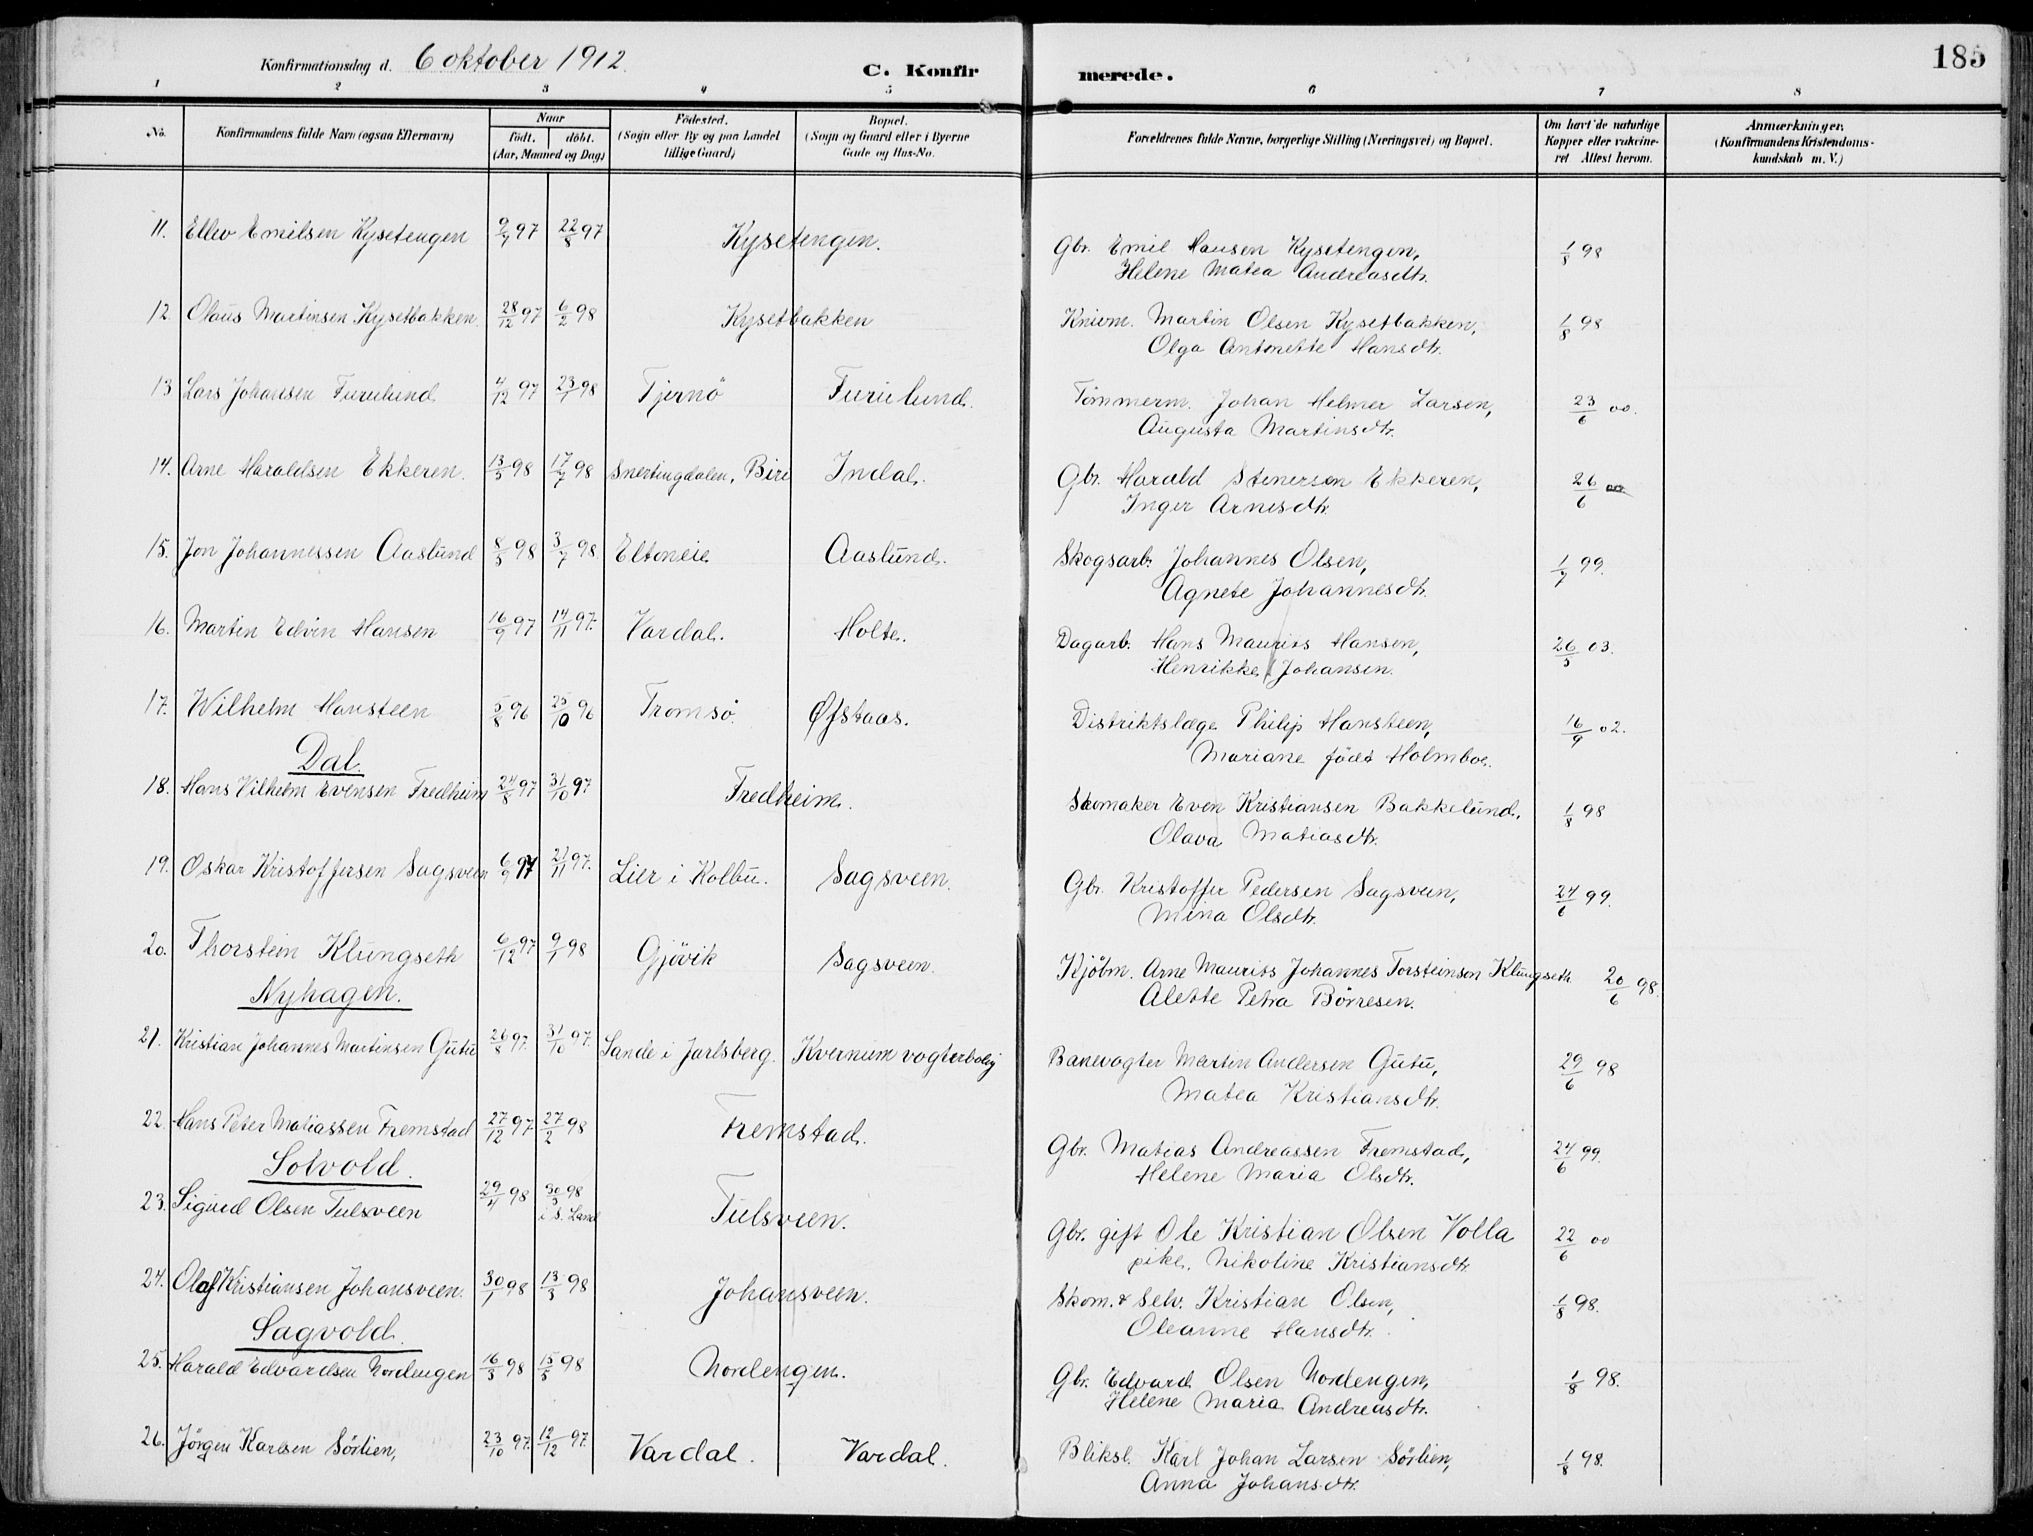 Konfirmationsdag d. 6 oktober 1912. C. Konfirmerede. 185
1 2 3 4 5 6 7 8
No. Konfirmandens fulde Navn (ogsaa Efternavn) Naar født. døbt. (Aar, Maaned og Dag) Fødested. (Sogn eller By og paa Landet tillige Gaard) Bopæl. (Sogn og Gaard eller i Byerne Gade og Hus-No. Forældrenes fulde Navne, borgerlige Stilling (Næringsvei) og Bopæl. Om havt de naturlige Kopper eller vakcineret Attest herom. Anmærkninger. (Konfirmandens Kristendomskundskab m. V.)
11. Ellev Emilsen Kysetengen 9/7 97 22/8 97 Kysetengen. Gbr. Emil Hansen Kysetengen, 1/8 98
Helene Matea Andreasdtr.
12. Olaus Martinsen Kysetbakken 28/12 97 6/2 98 Kysetbakken Kniom. Martin Olsen Kysetbakken, 1/8 98
Olga Antonette Hansdtr.
13 Lars Johansen Furulund 4/12 97 23/1 98 Tjernö Furulund. Tömmerm. Johan Helmer Larsen, 23/6 00.
Augusta Martinsdtr.
14. Arne Haraldsen Ekkeren. 13/5 98 17/7 98 Snertingdalen, Biri Indal. Gbr. Harald Stenersen Ekkeren, 26/6 00
Inger Arnesdtr.
15. Jon Johannessen Aaslund 8/5 98 3/7 98. Eltoneie Aaslund. Skogsarb. Johannes Olsen, 1/7 99.
Agnete Johannesdtr.
16. Martin Edvin Hansen 16/9 97 14/11 97. Vardal. Holte. Dagarb. Hans Maurits Hansen, 26/5 03.
Henrikke Johansen.
17. Wilhelm Hansteen 5/8 96 25/10 96 Tromsö. Øfstaas. Distriktslæge Philip Hansteen, 16/9 02.
Mariane født Holmboe.
Dal.
18. Hans Vilhelm Evensen Fredheim 24/8 97 31/10 97. Fredheim. Skomaker Even Kristiansen Bakkelund. 1/8 98
Olava Matiasdtr.
19. Oskar Kristoffersen Sagsveen 6/9 97 21/11 97. Lier i Kolbu. Sagsveen. Gbr. Kristoffer Pedersen Sagsveen, 24/6 99.
Mina Olsdtr.
20. Thorstein Klungseth 6/12 97 9/1 98 Gjövik Sagsveen. Kjöbm. Arne Maurits Johannes Torsteinsen Klungseth 20/6 98.
Alette Petra Börresen.
Nyhagen.
21. Kristian Johannes Martinsen Gutu 26/8 97. 31/10 97. Sande i Jarlsberg. Kvernum vogterbolig Banevogter Martin Andersen Gutu, 29/6 98
Matea Kristiansdtr.
22. Hans Peter Matiassen Fremstad 27/12 97 27/2 98 Fremstad. Gbr. Matias Andreassen Fremstad, 24/6 99.
Helene Maria Olsdtr.
Solvold.
23. Sigurd Olsen Tulsveen 29/4 98 30/5 98 i S. Land Tulsveen. Gbr. gift Ole Kristian Olsen Volla 22/6 00
pike. Nikoline Kristiansdtr.
24. Olaf Kristiansen Johansveen. 30/1 98 13/3 98 Johansveen. Skom. & Selv. Kristian Olsen, 1/8 98.
Oleanne Hansdtr.
Sagvold.
25. Harald Edvardsen Nordengen 16/3 98 15/5 98 Nordengen. Gbr. Edvard Olsen Nordengen, 1/8 98.
Helene Maria Andreasdtr.
26. Jörgen Karlsen Sörlien, 23/10 97. 12/12 97. Vardal. Vardal. Bliksl. Karl Johan Larsen Sörlien, 1/8 98.
Anna Johansdtr.